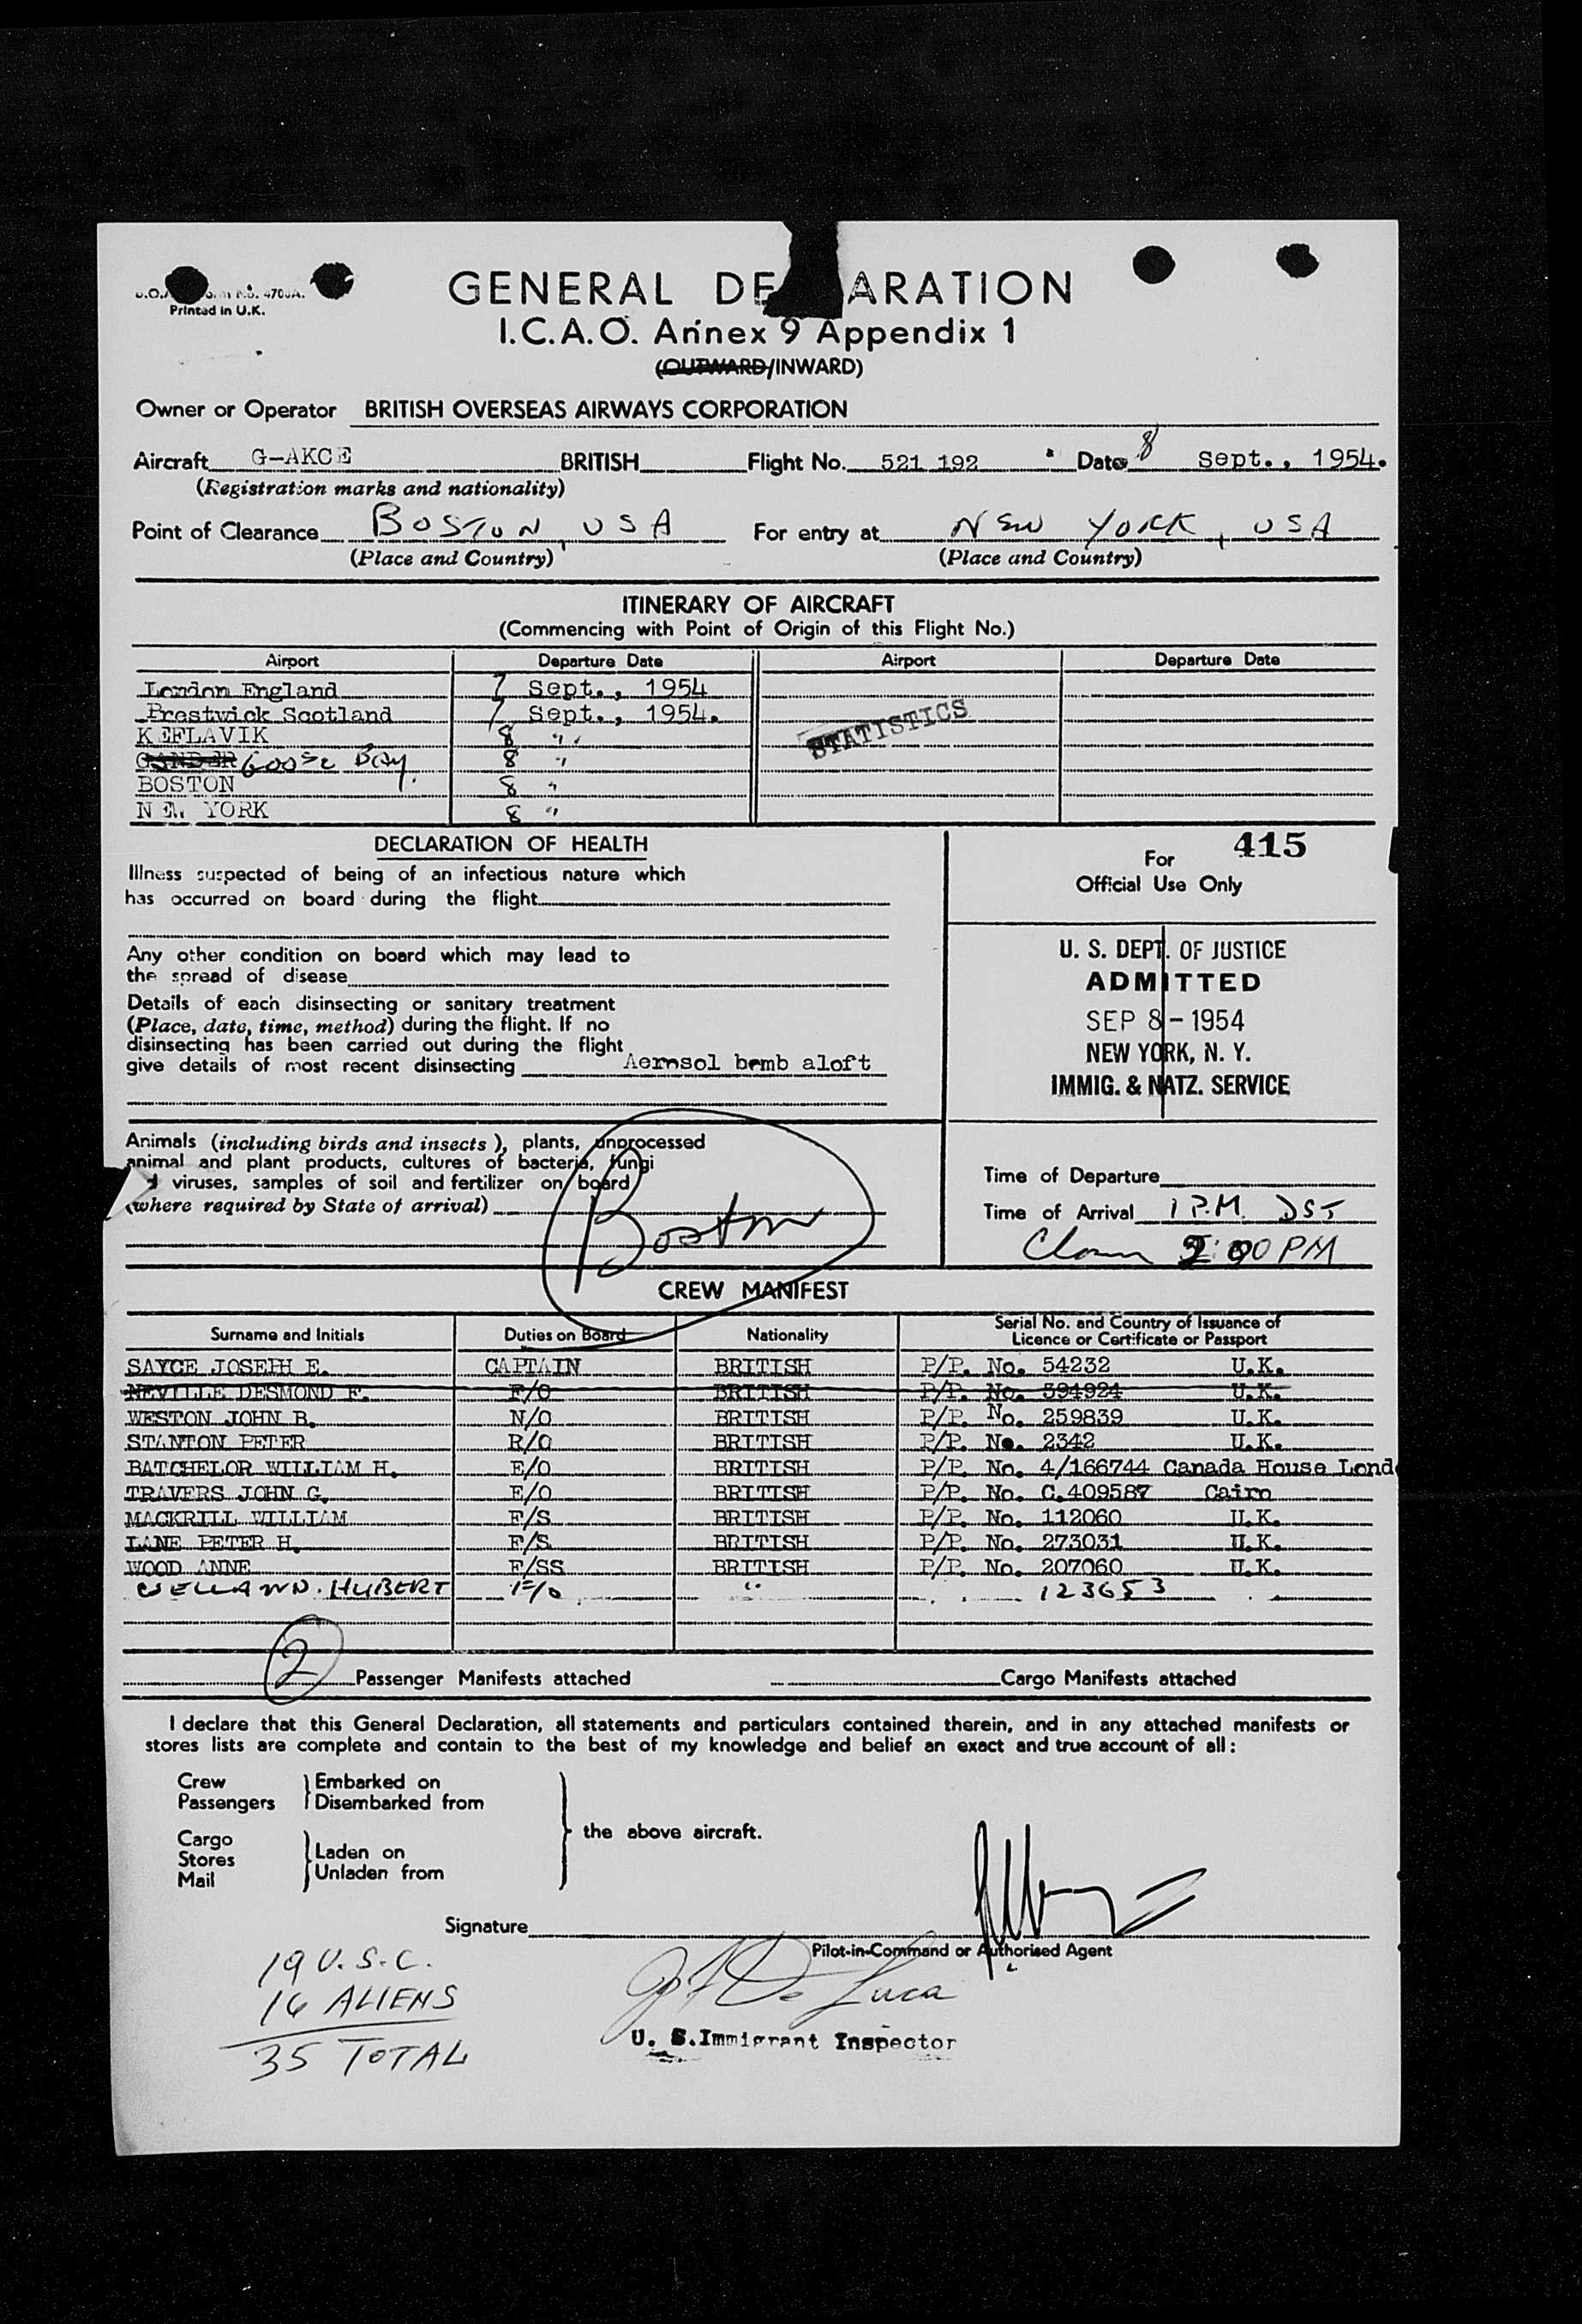 Printed in U.K.
GENERAL DE ARATION
I.C.A.O. Annex 9 Appendix 1
(OUTWARD/INWARD)
Owner or Operator BRITISH OVERSEAS AIRWAYS CORPORATION
Aircraft G-AKCE BRITISH Flight No. 521 192 Date 8 Sept., 1954.
(Registration marks and nationality)
Point of Clearance BOSTON, USA For entry at NEW YORK, USA
(Place and Country) (Place and Country)
ITINERARY OF AIRCRAFT
(Commencing with Point of Origin of this Flight No.)
Airport Departure Date Airport Departure Date
London England 7 Sept., 1954
Prestwick Scotland 7 Sept., 1954.
KEFLAVIK 8 "
GANDER Goose Bay. 8 "
BOSTON 8 "
NEW YORK 8 "
STATISTICS
DECLARATION OF HEALTH
Illness suspected of being of an infectious nature which
has occurred on board during the flight
Any other condition on board which may lead to
the spread of disease
Details of each disinsecting or sanitary treatment
(Place, date, time, method) during the flight. If no
disinsecting has been carried out during the flight
give details of most recent disinsecting Aerosol bomb aloft
Animals (including birds and insects), plants, unprocessed
animal and plant products, cultures of bacteria, fungi
viruses, samples of soil and fertilizer on board
(where required by State of arrival)
Boston
415
For
Official Use Only
U. S. DEPT. OF JUSTICE
ADMITTED
SEP 8 - 1954
NEW YORK, N. Y.
IMMIG. & NATZ. SERVICE
Time of Departure
Time of Arrival 1 P.M. DST
2:00 PM
CREW MANIFEST
Surname and Initials Duties on Board Nationality Serial No. and Country of Issuance of
Licence or Certificate or Passport
SAYCE JOSEPH E. CAPTAIN BRITISH P/P. No. 54232 U.K.
NEVILLE DESMOND F. F/O BRITISH P/P. No. 394924 U.K.
WESTON JOHN B. N/O BRITISH P/P. No. 259839 U.K.
STANTON PETER R/O BRITISH P/P. No. 2342 U.K.
BATCHELOR WILLIAM H. E/O BRITISH P/P. No. 4/166744 Canada House Lond
TRAVERS JOHN G. E/O BRITISH P/P. No. C.409587 Cairo
MACKRILL WILLIAM F/S BRITISH P/P. No. 112060 U.K.
LANE PETER H. F/S. BRITISH P/P. No. 273031 U.K.
WOOD ANNE F/SS BRITISH P/P. No. 207060 U.K.
HUBERT F/O " 123653
2 Passenger Manifests attached Cargo Manifests attached
I declare that this General Declaration, all statements and particulars contained therein, and in any attached manifests or
stores lists are complete and contain to the best of my knowledge and belief an exact and true account of all:
Crew Embarked on
Passengers Disembarked from
the above aircraft.
Cargo
Stores Laden on
Mail Unladen from
Signature
Pilot-in-Command or Authorised Agent
19 U.S.C.
16 ALIENS
35 TOTAL
De Luca
U. S. Immigrant Inspector